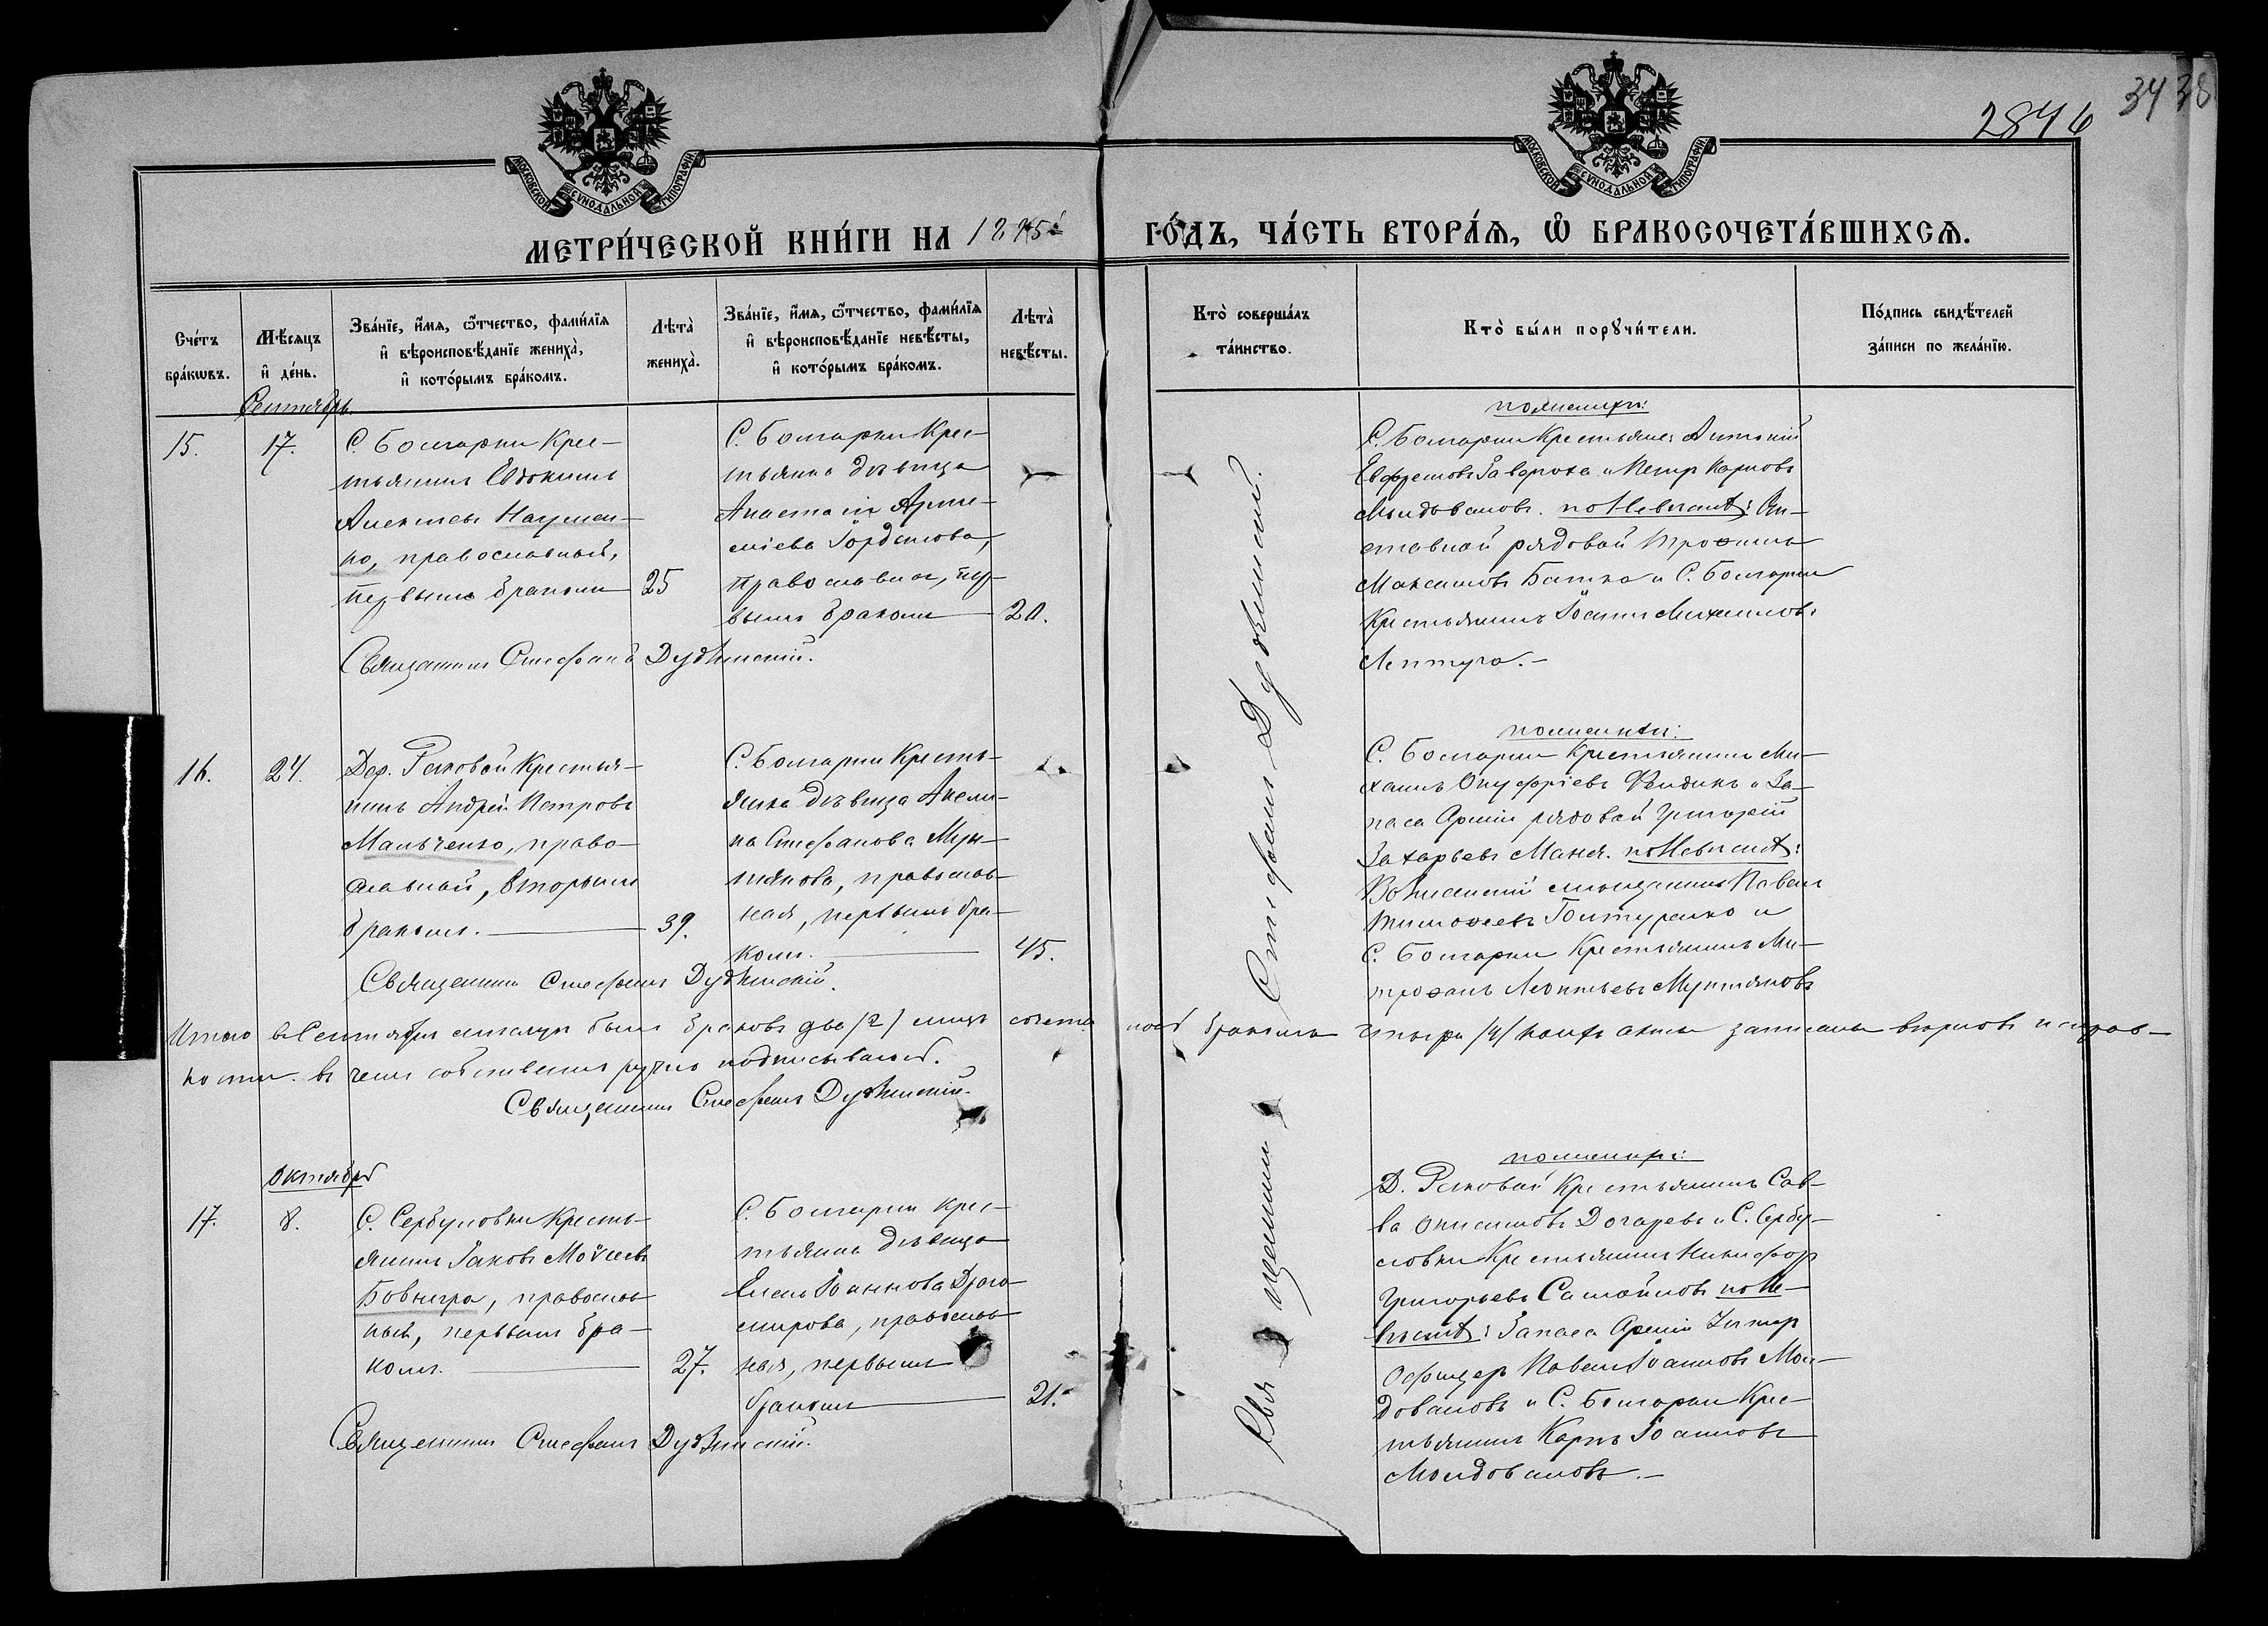 МОСКОВСКОЙ СѴНОДАЛЬНОЙ ТИПОГРАФІИ
МОСКОВСКОЙ СѴНОДАЛЬНОЙ ТИПОГРАФІИ
2846
34 38
МЕТРИ́ЧЕСКОЙ КНИ́ГИ НА
ГО́ДЪ, ЧА́СТЬ ВТОРА́Ѧ, Ѡ҆ БРАКОСОЧЕТА́ВШИХСѦ.
Сче́тъ бра́кѡвъ.
Мѣ́сяцъ и҆ де́нь.
Зва́нїе, и҆́мѧ, ѻ҆́тчество, фами́лїѧ и҆ вѣроисповѣ́данїе жениха̀, и҆ кото́рымъ бра́комъ.
Лѣта̀ жениха̀.
Зва́нїе, и҆́мѧ, ѻ҆́тчество, фами́лїѧ и҆ вѣроисповѣ́данїе невѣ́сты, и҆ кото́рымъ бра́комъ.
Лѣта̀ невѣ́сты.
Кто̀ соверша́лъ та́инство.
Кто̀ бы́ли порꙋчи́тели.
По́дпись свидѣ́телей за́писи по жела́нїю.
Сентябрь.
15.
17.
С. Болгарки Крес-
тьянинъ Евдокимъ
Алексѣевъ Наумен-
ко, православный,
первымъ бракомъ
25
С. Болгарки Крес-
тьянка дѣвица
Анастасія Арте-
міева Іорданова,
православная, пер-
вымъ бракомъ
20.
Священникъ Стефанъ Дубинскій.
по женихѣ:
С. Болгарки Крестьяне: Антоній
Евфремовъ Гаврюха и Петръ Карповъ
Молдовановъ. по Невѣстѣ: От-
ставной рядовой Трофимъ
Максимовъ Батка и С. Болгарки
Крестьянинъ Іоаннъ Михаиловъ
Лептуга.
16.
24.
Дер. Раковой Крестья-
нинъ Андрей Петровъ
Мальченко, право-
славный, вторымъ
бракомъ.
39.
С. Болгарки Кресть-
янка дѣвица Акили-
на Стефанова Мун-
тянова, православ-
ная, первымъ бра-
комъ.
45.
Священникъ Стефанъ Дубинскій.
по женихѣ:
С. Болгарки Крестьянинъ Ми-
хаилъ Онуфріевъ и За-
паса Арміи рядовой Григорій
Захарьевъ Маня. по Невѣстѣ:
мѣщанинъ Павелъ
Тимофеевъ и
С. Болгарки Крестьянинъ Ми-
трофанъ Леонтьевъ Мунтяновъ
Итого въ Сентябрѣ мѣсяцѣ было браковъ два /2/ лицъ бракомъ четыре /4/ акты записаны вѣрно
въ чемъ собственноручно подписываюсь.
Священникъ Стефанъ Дубинскій.
Октябрь
17.
8.
С. Сербуловки Кресть-
янинъ Іаковъ Моѵсеевъ
Бовнегра, православ-
ный, первымъ бра-
комъ.
27.
С. Болгарки Крес-
тьянка дѣвица
Елена Іоаннова Драго-
мирова, православ-
ная, первымъ
бракомъ
21.
Священникъ Стефанъ Дубинскій.
по женихѣ:
Д. Раковой Крестьянинъ Сав-
ва Онисимовъ Догаревъ и С. Сербу-
ловки Крестьянинъ Никифоръ
Григорьевъ Самойловъ по Не-
вѣстѣ: Запаса Арміи Унтеръ
Офицеръ Павелъ Іоанновъ Мол-
довановъ и С. Болгарки Крес-
тьянинъ Карпъ Іоанновъ
Молдовановъ.
Священникъ Стефанъ Дубинскій.